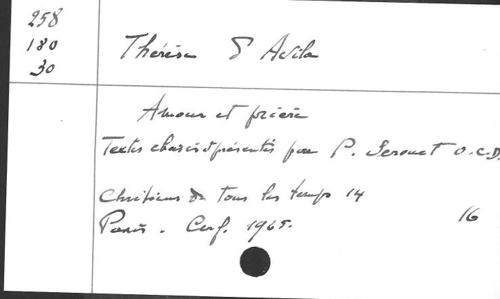 258
180
30
Thérèse d'Avila
Amour et prière
Textes choisis et présentés par P. Serouet O.C.D.
Chrétiens de tous les temps 14
Paris. Cerf. 1965.
16